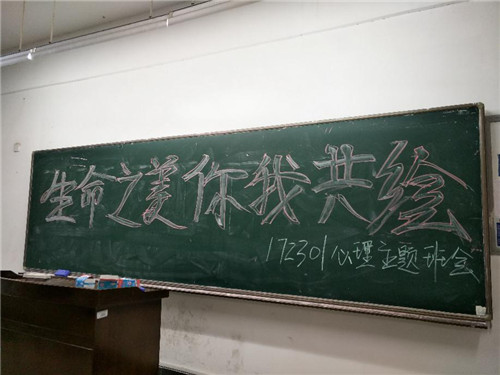 生命之美你我共绘
172301心理主题班会